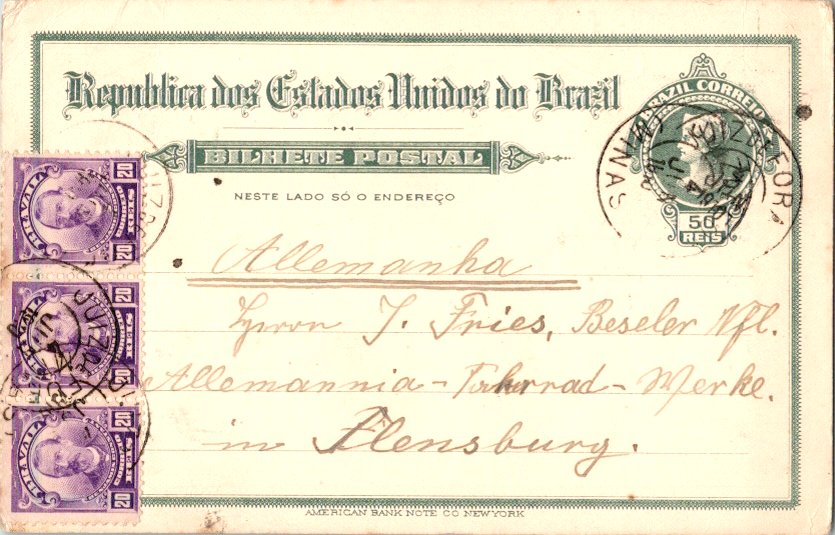 Republica dos Estados Unidos do Brazil
BRAZIL CORREIO
BILHETE POSTAL
NESTE LADO SÓ O ENDEREÇO
50
REIS
JUIZ DE FORA
MINAS
20 REIS 20
20 REIS 20
20 REIS 20
Allemanha
Herrn J. Fries, Beseler Nfl.
Allemannia-Fahrrad-Werke.
in Flensburg.
AMERICAN BANK NOTE CO NEW YORK